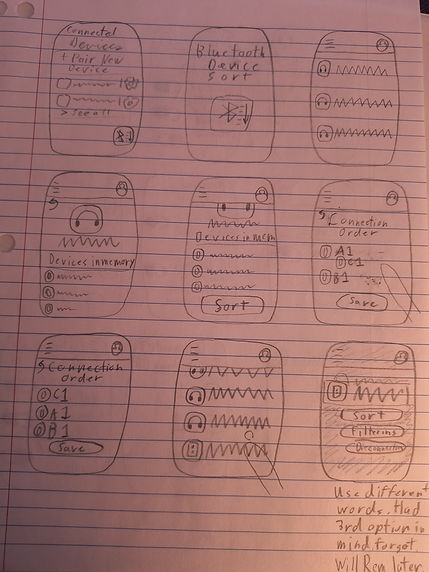 Connected
Devices
+ Pair New
Device
> See all
Bluetooth
Device
Sort
Devices in memory
Devices in mem
Sort
Connection
Order
A1
C1
B1
Save
Connection
Order
C1
A1
B1
Save
Sort
Filtering
Disconnection
Use different
words. Had
3rd option in
mind, forgot.
Will Rem later